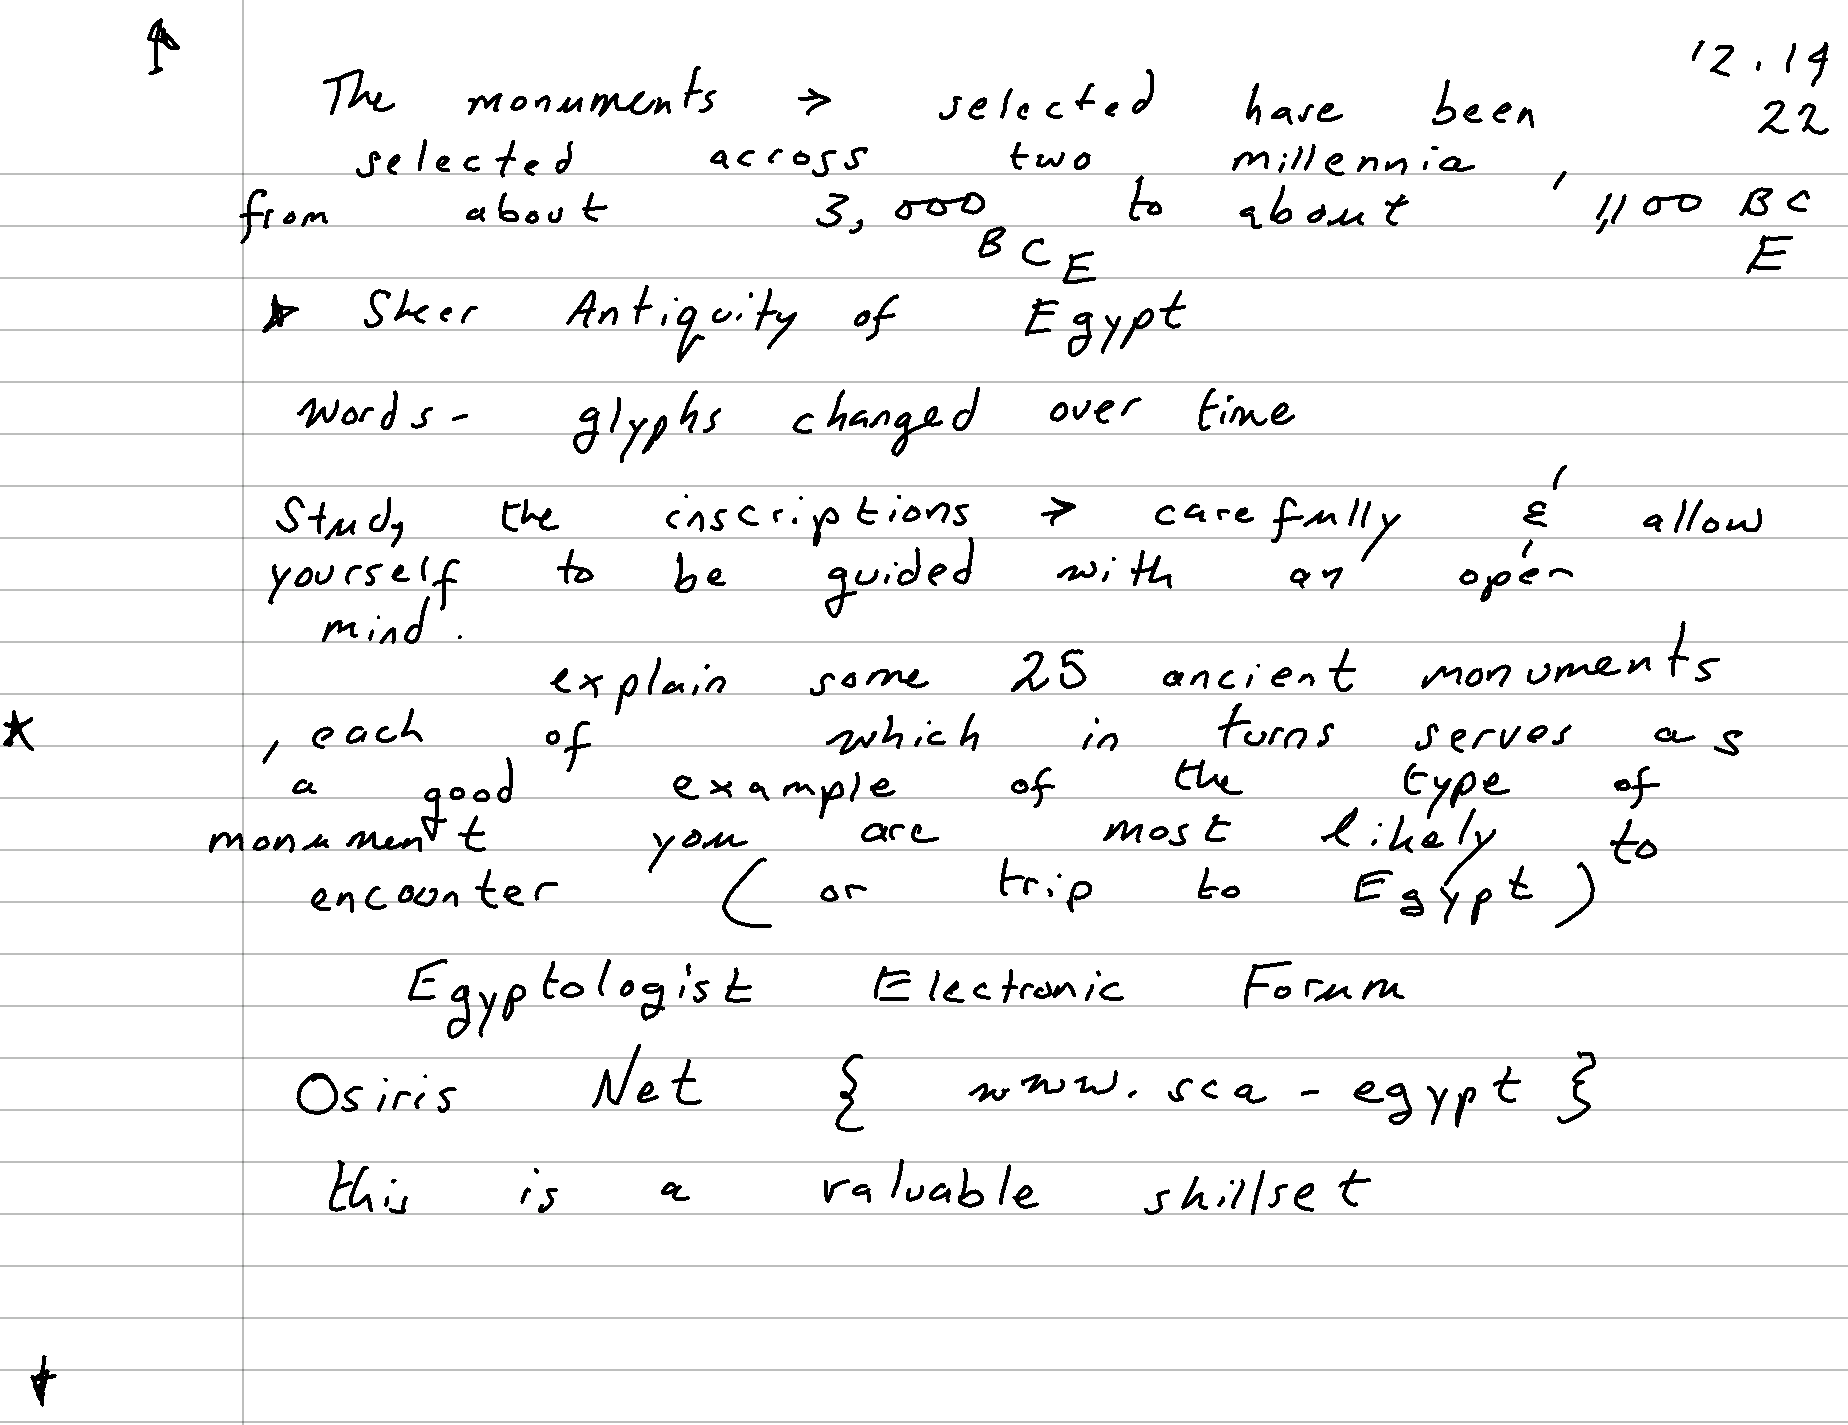 12.14
The monuments → selected have been 22
selected across two millennia,
from about 3,000 to about 1,100 BC
BCE E
★ Sheer Antiquity of Egypt
words - glyphs changed over time
Study the inscriptions → carefully & allow
yourself to be guided with an open
mind.
explain some 25 ancient monuments
★ , each of which in turns serves as
a good example of the type of
monument you are most likely to
encounter (or trip to Egypt)
Egyptologist Electronic Forum
Osiris Net { www.sca-egypt }
this is a valuable skillset